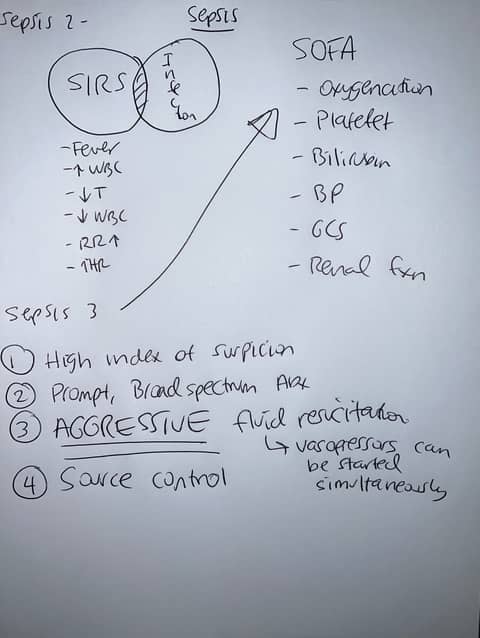 Sepsis
Sepsis 2 -
SIRS
Infection
- Fever
- ↑ WBC
- ↓ T
- ↓ WBC
- RR ↑
- ↑HR
Sepsis 3
SOFA
- Oxygenation
- Platelet
- Bilirubin
- BP
- GCS
- Renal fxn
① High index of suspicion
② Prompt, Broad spectrum Abx
③ AGGRESSIVE fluid resucitation
↳ vasopressors can
be started
simultaneously
④ Source control